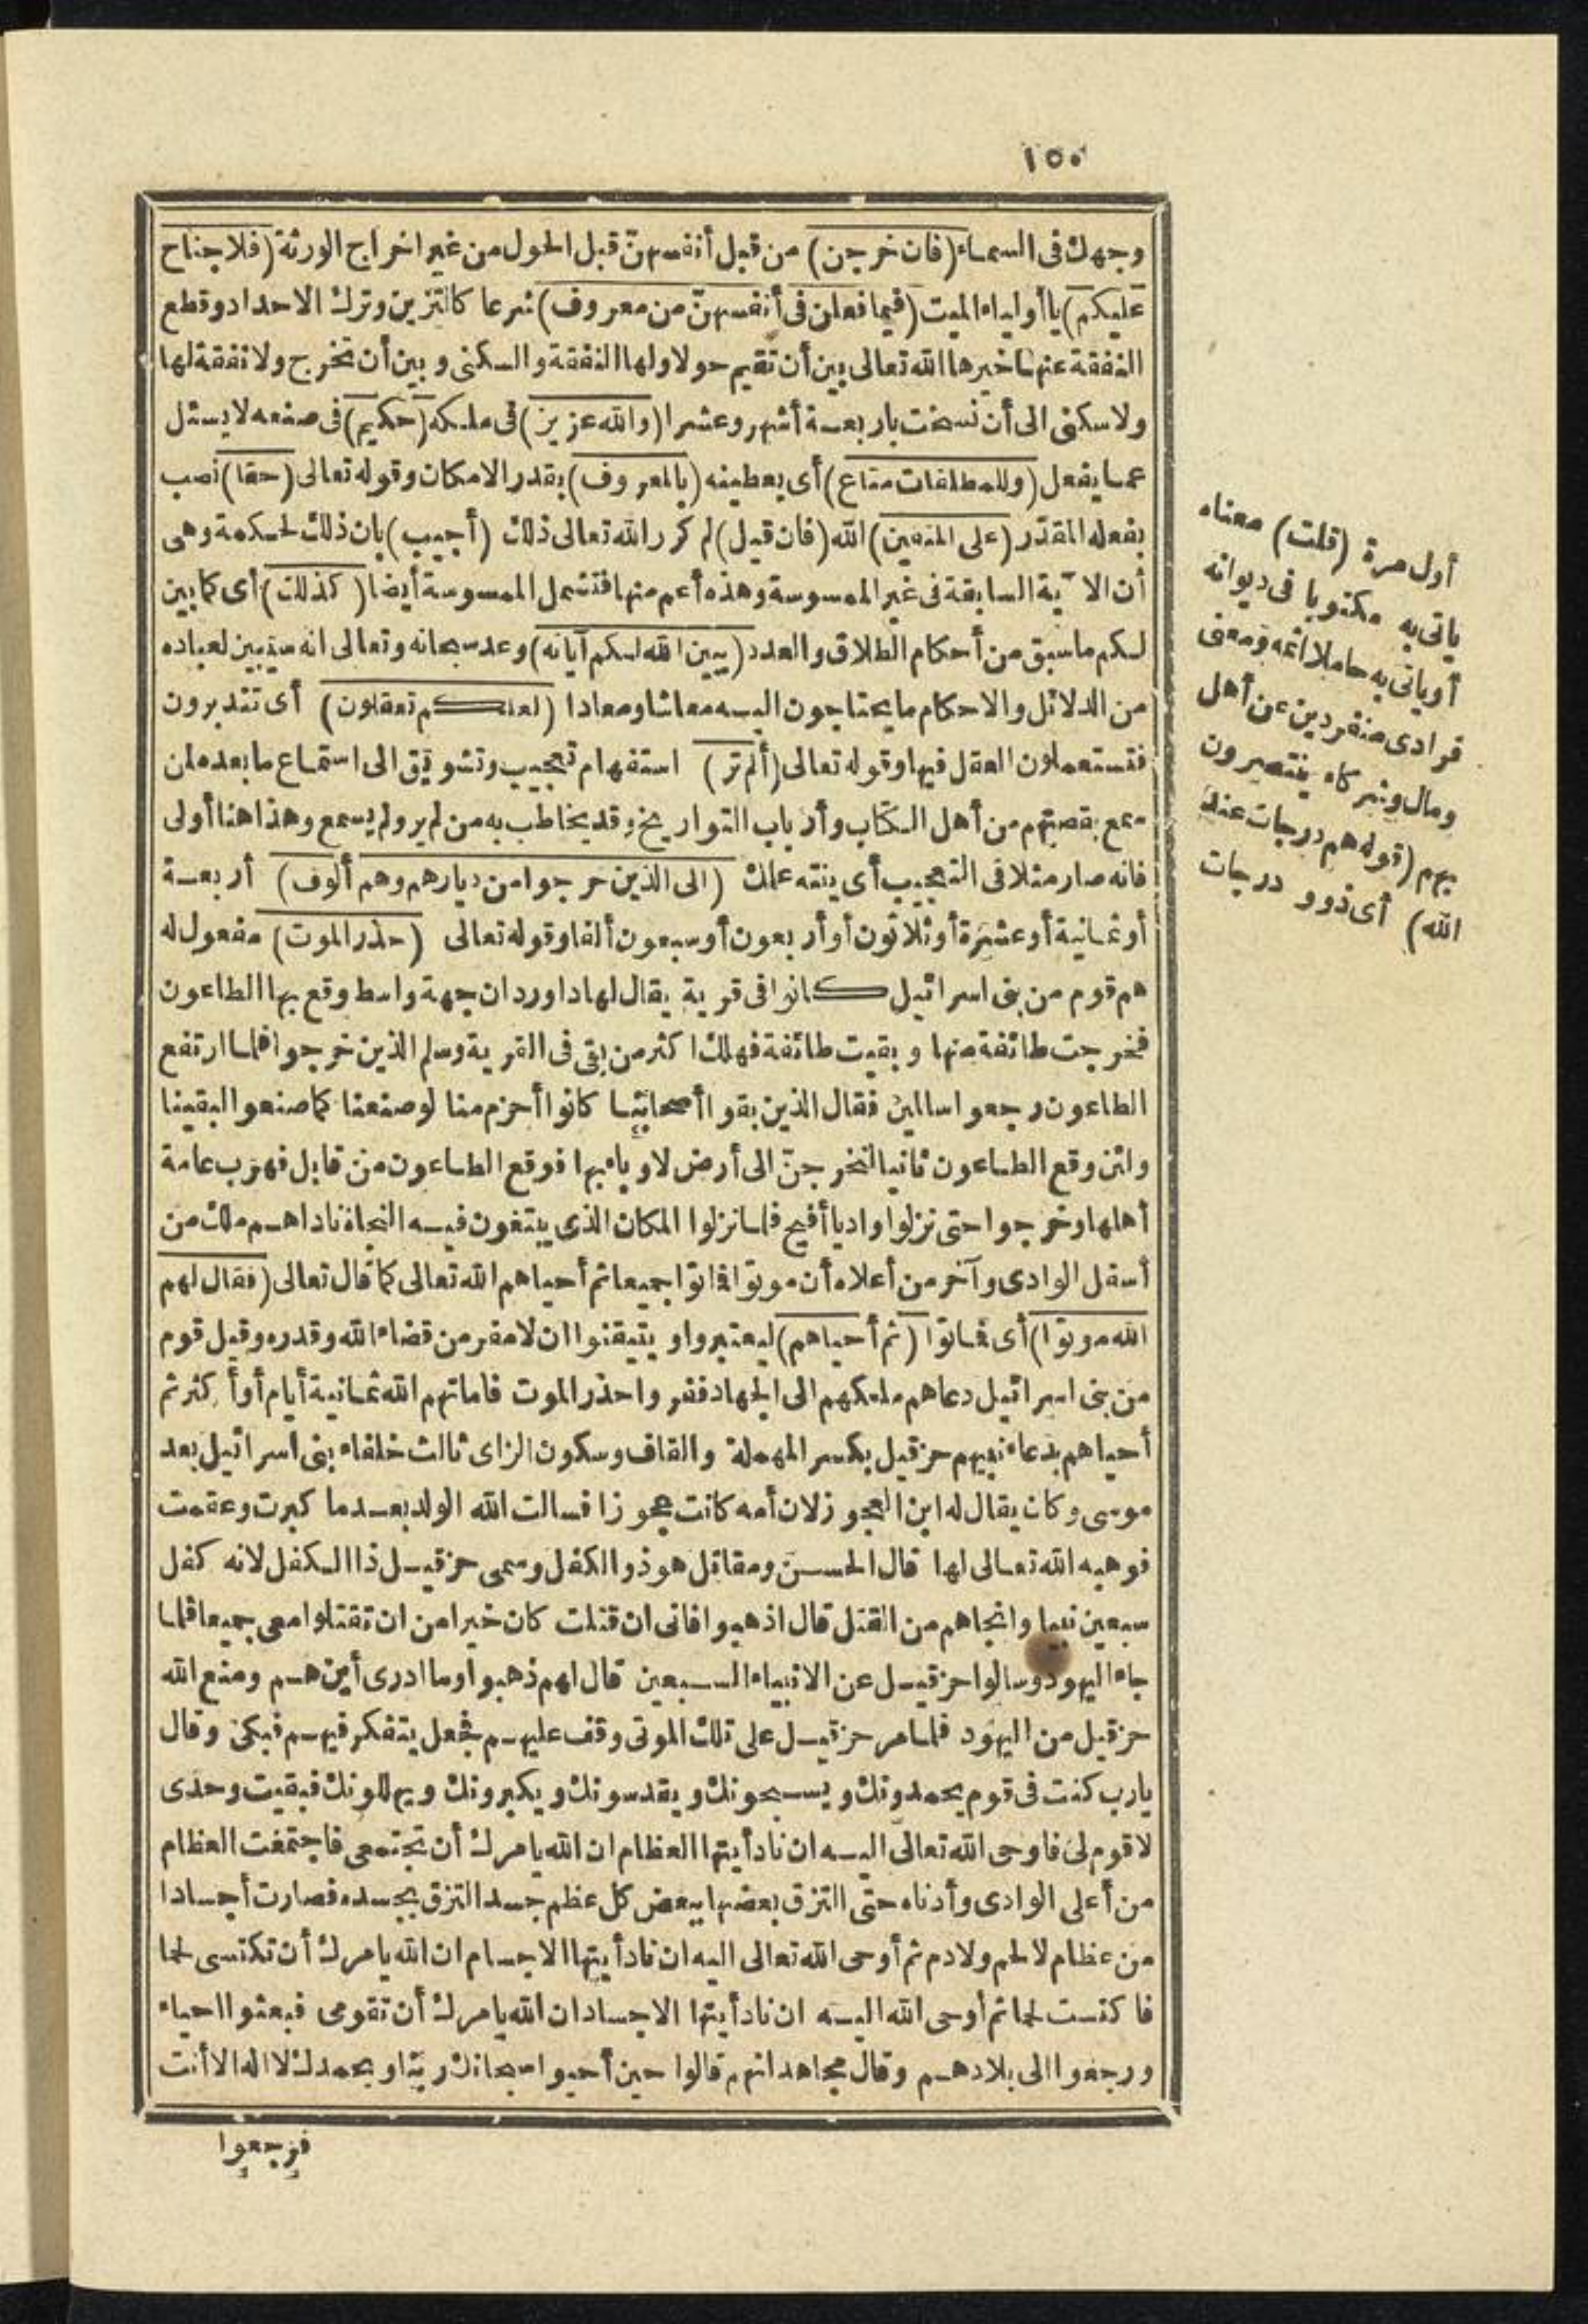 ١٥٠
وجهك فى السماء (فان خرجن) من قبل أنفسهنّ قبل الحول من غير اخراج الورثة (فلا جناح
عليكم) يا أولياء الميت (فيما فعلن فى أنفسهنّ من معروف) شرعا كالتزين وترك الاحداد وقطع
النفقة عنها خيرها الله تعالى بين أن تقيم حولا ولها النفقة والسكنى وبين أن تخرج ولا نفقة لها
ولا سكنى الى أن نسخت باربعة أشهر وعشرا (والله عزيز) فى ملكه (حكيم) فى صنعه لا يسئل
عما يفعل (وللمطلقات متاع) أى يعطينه (بالمعروف) بقدر الامكان وقوله تعالى (حقا) نصب
بفعله المقدّر (على المتقين) الله (فان قيل) لم كرر الله تعالى ذلك (أجيب) بان ذلك لحكمة وهى
أن الآية السابقة فى غير الممسوسة وهذه أعم منها فتشمل الممسوسة أيضا (كذلك) أى كما بين
لكم ما سبق من أحكام الطلاق والعدد (يبين الله لكم آياته) وعد سبحانه وتعالى انه سيبين لعباده
من الدلائل والاحكام ما يحتاجون اليه معاشا ومعادا (لعلكم تعقلون) أى تتدبرون
فتستعملون العقل فيها وقوله تعالى (ألم تر) استفهام تعجيب وتشويق الى استماع ما بعده لمن
سمع بقصتهم من أهل الكتاب وأرباب التواريخ وقد يخاطب به من لم ير ولم يسمع وهذا هنا أولى
فانه صار مثلا فى التعجيب أى ينته علمك (الى الذين خرجوا من ديارهم وهم ألوف) أربعة
أو ثمانية أو عشرة أو ثلاثون أو أربعون أو سبعون ألفا وقوله تعالى (حذر الموت) مفعول له
هم قوم من بنى اسرائيل كانوا فى قرية يقال لها داوردان جهة واسط وقع بها الطاعون
فخرجت طائفة منها وبقيت طائفة فهلك اكثر من بقى فى القرية وسلم الذين خرجوا فلما ارتفع
الطاعون رجعوا سالمين فقال الذين بقوا أصحابنا كانوا أحزم منا لو صنعنا كما صنعوا لبقينا
ولئن وقع الطاعون ثانيا لنخرجنّ الى أرض لا وباء بها فوقع الطاعون من قابل فهرب عامة
أهلها وخرجوا حتى نزلوا واديا أفيح فلما نزلوا المكان الذى يبتغون فيه النجاة ناداهم ملك من
أسفل الوادى وآخر من أعلاه أن موتوا فماتوا جميعا ثم أحياهم الله تعالى كما قال تعالى (فقال لهم
الله موتوا) أى فماتوا (ثم أحياهم) ليعتبروا ويتيقنوا ان لا مفر من قضاء الله وقدره وقيل قوم
من بنى اسرائيل دعاهم ملكهم الى الجهاد ففروا حذر الموت فاماتهم الله ثمانية أيام أو أكثر ثم
أحياهم بدعاء نبيهم حزقيل بكسر المهملة والقاف وسكون الزاى ثالث خلفاء بنى اسرائيل بعد
موسى وكان يقال له ابن العجوز لان أمه كانت عجوزا فسالت الله الولد بعدما كبرت وعقمت
فوهبه الله تعالى لها قال الحسن ومقاتل هو ذو الكفل وسمى حزقيل ذا الكفل لانه كفل
سبعين نبيا وانجاهم من القتل قال اذهبوا فانى ان قتلت كان خيرا من ان تقتلوا معى جميعا فلما
جاء اليهود وسالوا حزقيل عن الانبياء السبعين قال لهم ذهبوا وما ادرى أين هم ومنع الله
حزقيل من اليهود فلما مر حزقيل على تلك الموتى وقف عليهم فجعل يتفكر فيهم فبكى وقال
يارب كنت فى قوم يحمدونك ويسبحونك ويقدسونك ويكبرونك ويهللونك فبقيت وحدى
لا قوم لى فاوحى الله تعالى اليه ان ناد أيتها العظام ان الله يامرك أن تجتمعى فاجتمعت العظام
من أعلى الوادى وأدناه حتى التزق بعضها ببعض كل عظم جسد التزق بجسده فصارت أجسادا
من عظام لا لحم ولا دم ثم أوحى الله تعالى اليه ان ناد أيتها الاجسام ان الله يامرك أن تكتسى لحما
فاكتست لحما ثم أوحى الله اليه ان ناد أيتها الاجساد ان الله يامرك أن تقومى فبعثوا احياء
ورجعوا الى بلادهم وقال مجاهد انهم قالوا حين أحيوا سبحانك ربنا وبحمدك لا اله الا أنت
فرجعوا
أول مرة (قلت) معناه
ياتى به مكتوبا فى ديوانه
أو ياتى به حاملا اثمه ومعنى
فرادى منفردين عن أهل
ومال وشركاء ينتصرون
بهم (قوله هم درجات عند
الله) أى ذوو درجات